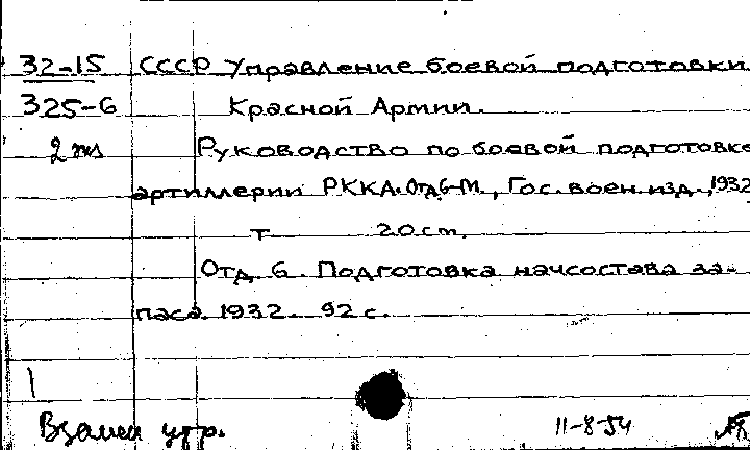 32-15 СССР Управление боевой подготовки
325-6 Красной Армии.
2 экз Руководство по боевой подготовке
артиллерии РККА. Отд. 6-М., Гос. воен. изд., 1932
т 20 см.
Отд. 6. Подготовка начсостава за-
паса. 1932. 92 с.
Взамен утр. 11-8-54